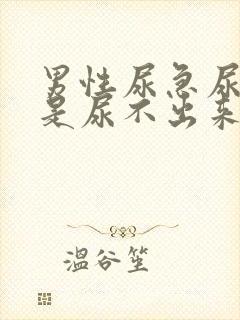 男性尿急尿
是尿不出来
温谷笙